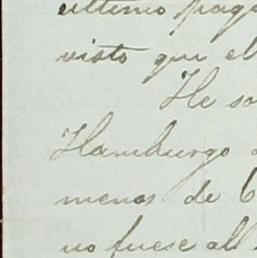 ultimo pago
visto que el
He
Hamburgo
menos de
no fuese al